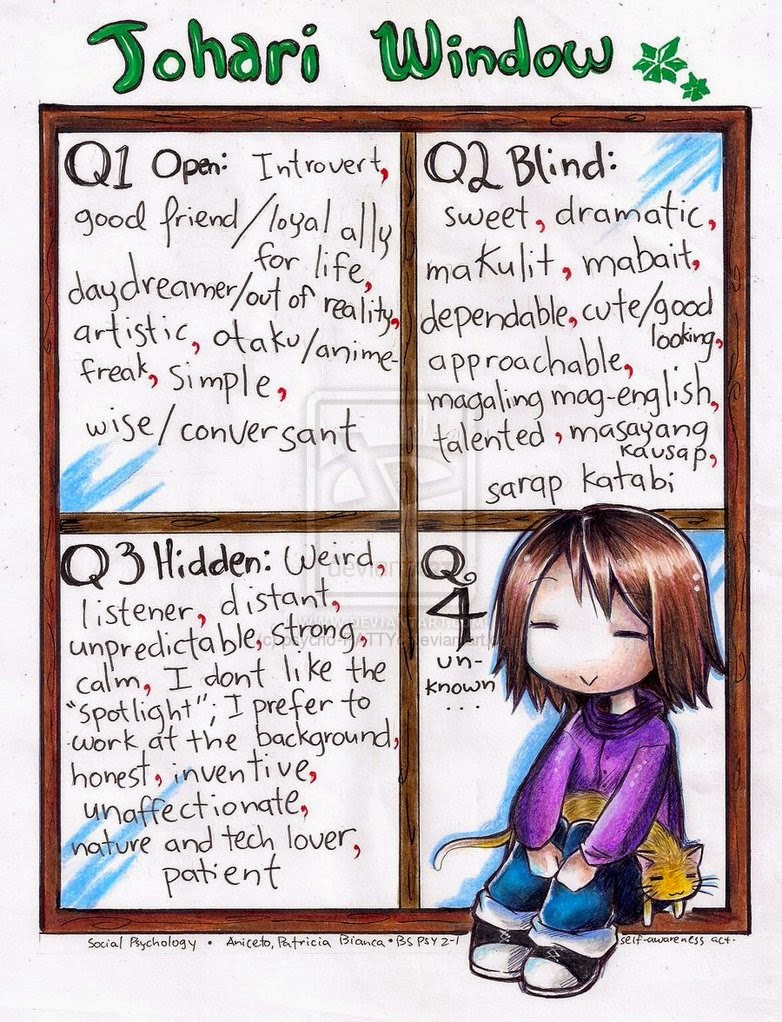 Johari Window
Q1 Open: Introvert,
good friend/loyal ally
for life,
daydreamer/out of reality,
artistic, otaku/anime-
freak, simple,
wise/conversant
Q2 Blind:
sweet, dramatic,
makulit, mabait,
dependable, cute/good
looking,
approachable,
magaling mag-english,
talented, masayang
kausap,
sarap katabi
Q3 Hidden: Weird,
listener, distant,
unpredictable, strong,
calm, I dont like the
"spotlight"; I prefer to
work at the background,
honest, inventive,
unaffectionate,
nature and tech lover,
patient
Q
4
un-
known
...
deviantART
WWW.DEVIANTART.COM
Social Psychology • Aniceto, Patricia Bianca • BS PSY 2-1
self-awareness act.